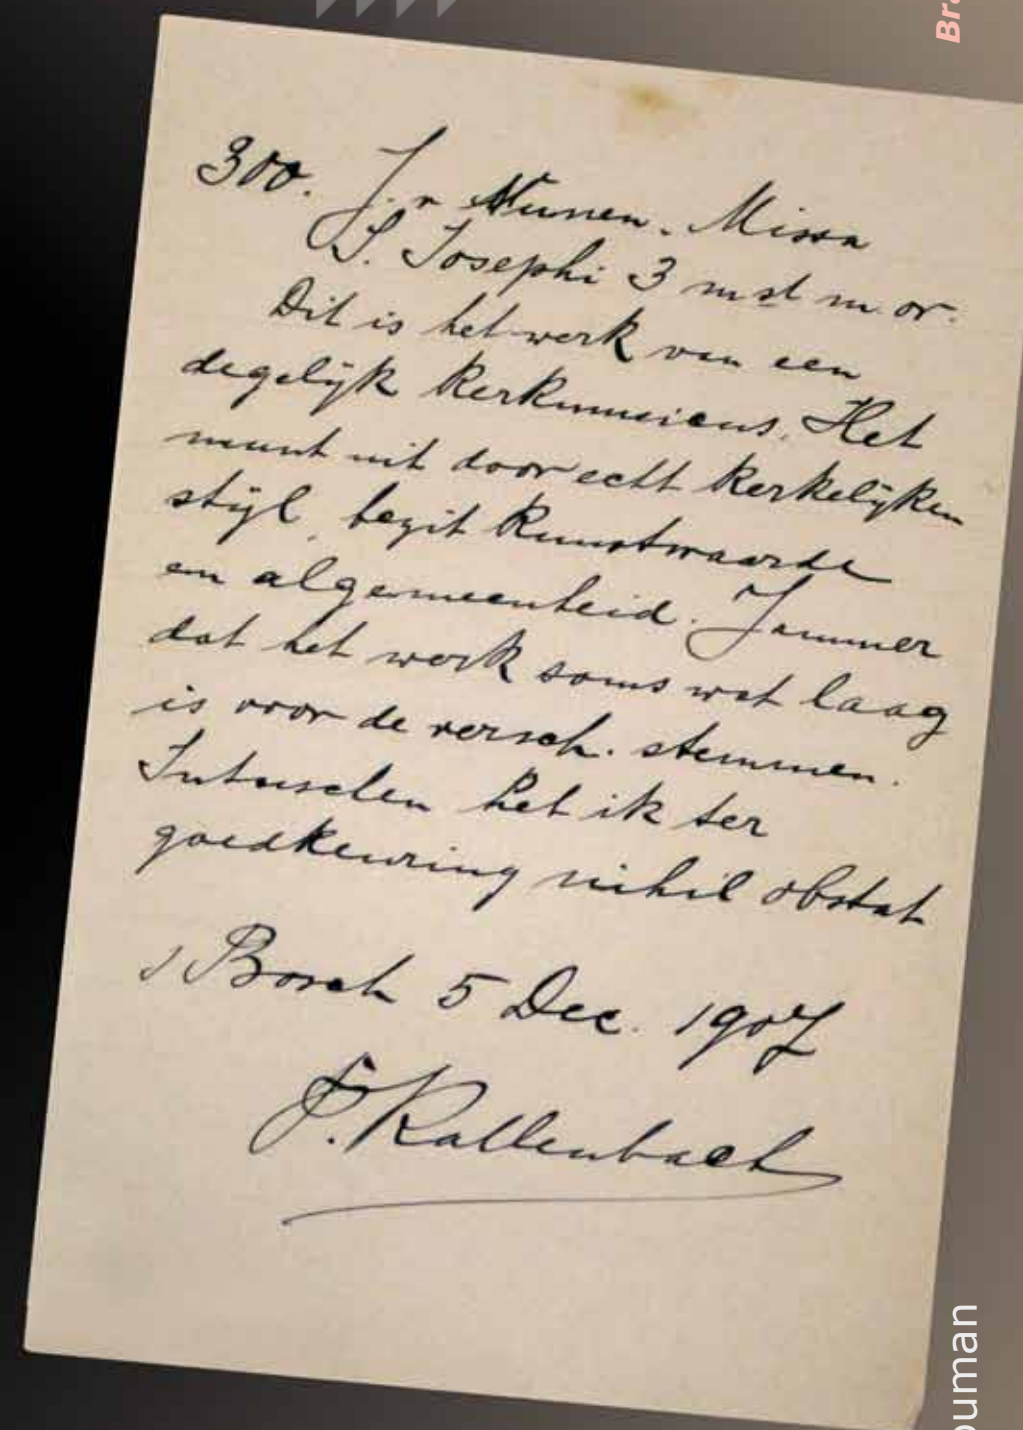 300. J. v Nunen. Missa
S. Josephi 3 mst m. or.
Dit is het werk van een
degelijk kerkmusicus. Het
munt uit door echt kerkelijken
stijl, bezit kunstwaarde
en algemeenheid. Jammer
dat het werk soms wat laag
is voor de versch. stemmen.
Intusschen het ik ter
goedkeuring nihil obstat
s Bosch 5 Dec. 1907
F. Kallenbach
Bra
ouman